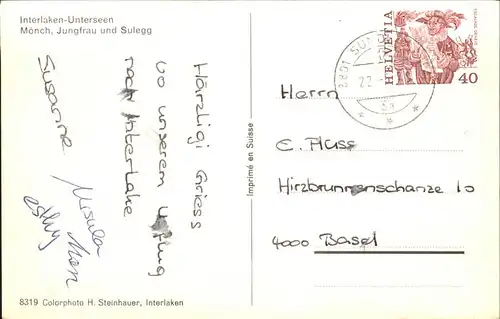 Interlaken-Unterseen
Mönch, Jungfrau und Sulegg
Härzligi Griess
vo unserem Usflug
nach Interlake
Susanne
Ursula
Esthy
8319 Colorphoto H. Steinhauer, Interlaken
Imprimé en Suisse
3801
22.-
HELVETIA
40
Herrn
E. Flüss
Hirzbrunnenschanze 10
4000 Basel